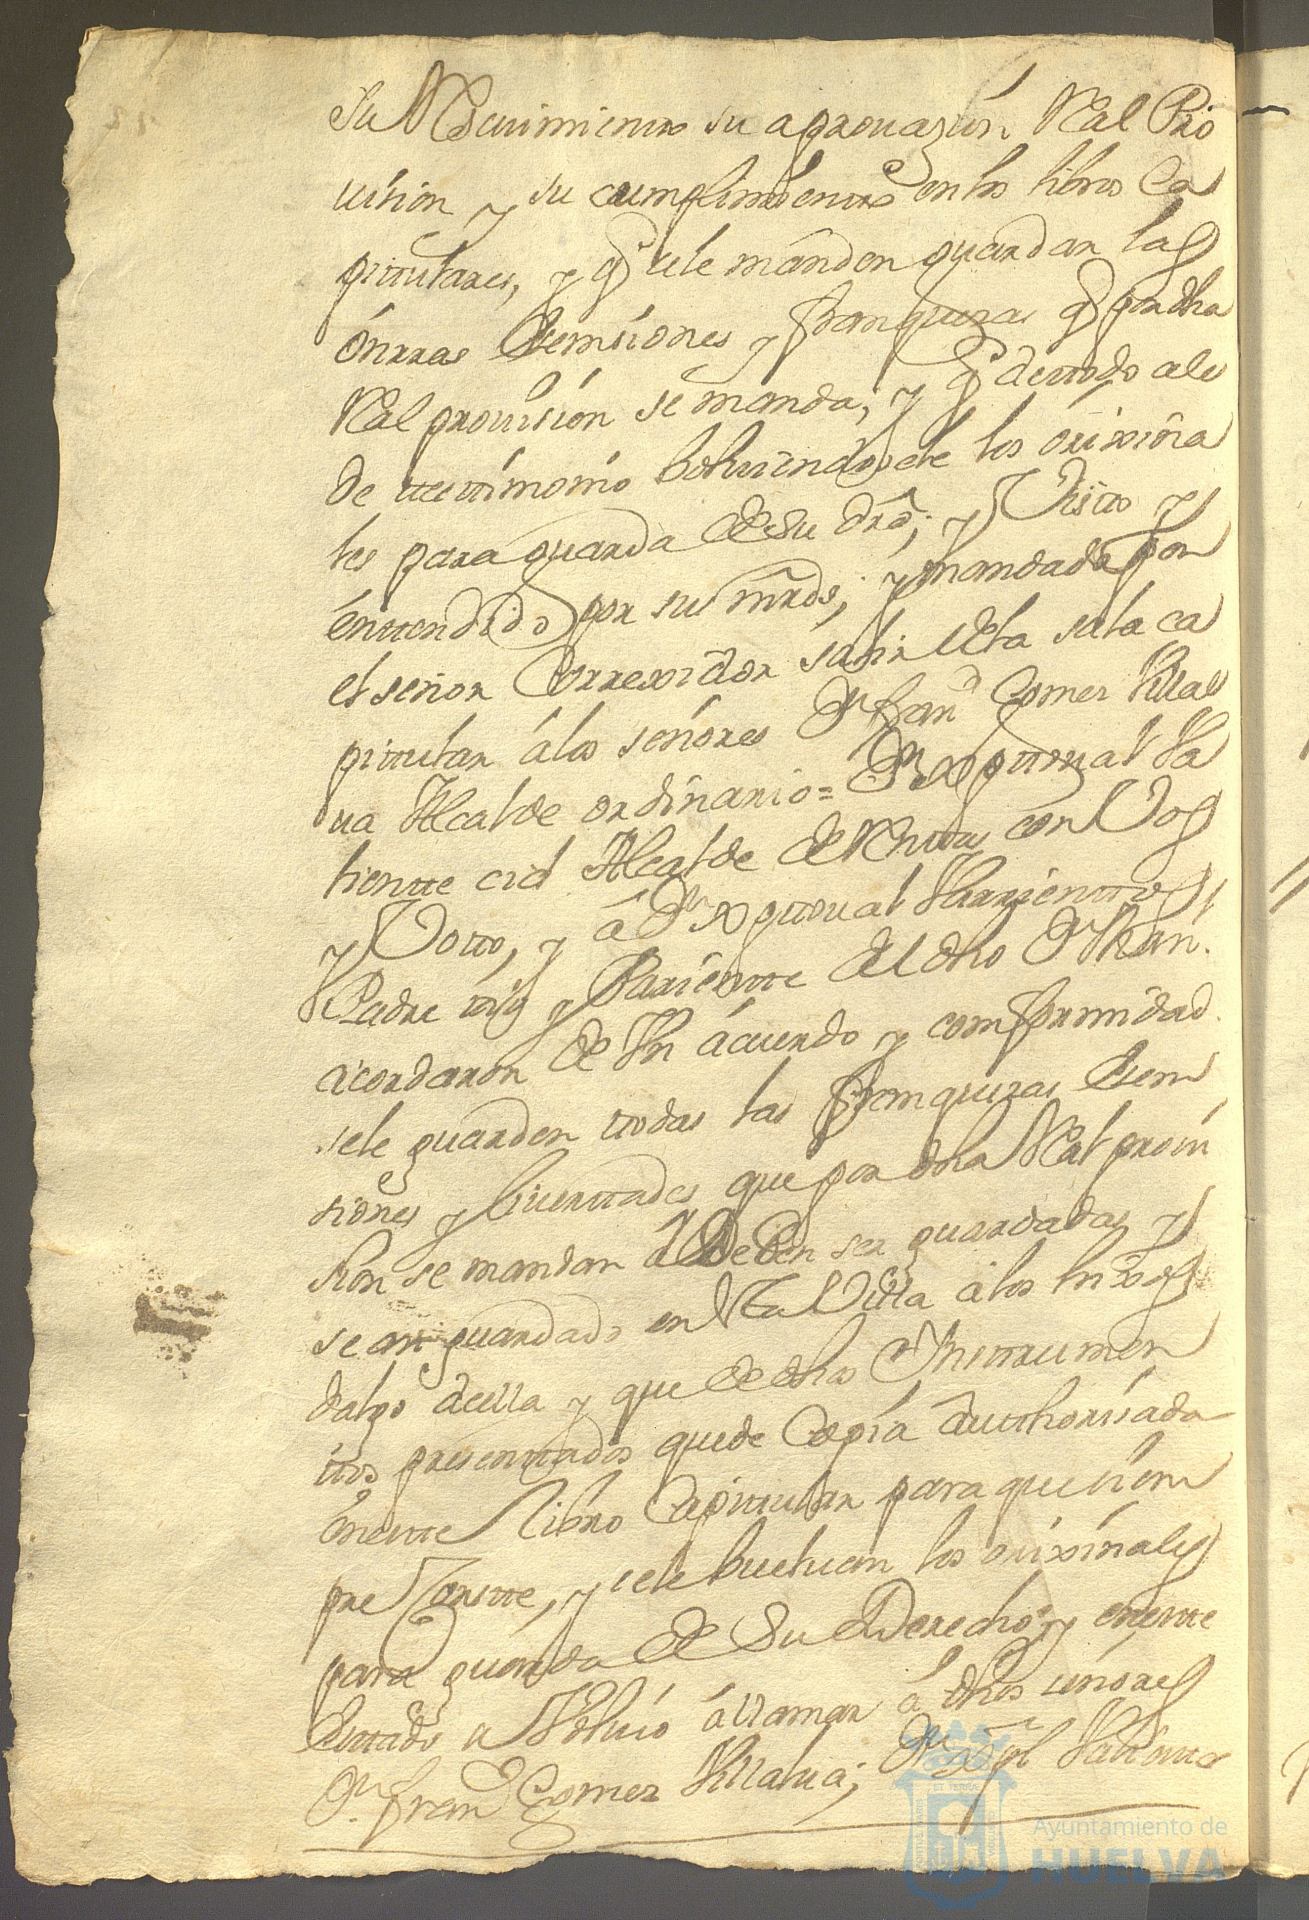 su Resevimiento su aprouazion Real Pro
uision y su cumplimiento en los libros Ca
pitulares, y q̃ se le manden guardar las
ónrras Essempsiones y franquezas q̃ por dha
Real prouision se manda, y q̃ de ttodo se le
de ttesttimonio boluiendosele los orixina
les para guarda de su dro; y Visto y
énttendido por sus mrds, y mandado por
el señor Correxidor salir desta sala ca
pitular á los señores Dn Franco Gomez Villal
ua Alcalde ordinario = Dn Xptoual Va
liente cid Alcalde de Rentas con Vos
y Votto, y á Dn Xptoual Barrienttos
Padre y Pariente del dho Dn
acordaron de Vn ácuerdo y comformidad
se le guarden ttodas las franquezas Essem
siones y liuerttades que por dha Real proui
sion se mandan á Deben ser guardadas y
sean guardado en esta Villa á los hixos
dalgo de ella y que de dhos Ynsttrumen
ttos presenttados quede Copia autthorisada
en estte libro Capittular para que siem
pre Constte, y se le buelvan los orixinales
para guarda de su Derecho; y en estte
esttado se Voluió á llamar á dhos señores
Dn Franco Gomez Villalua; Dn Xptl Valiente
Ayuntamiento de
HUELVA